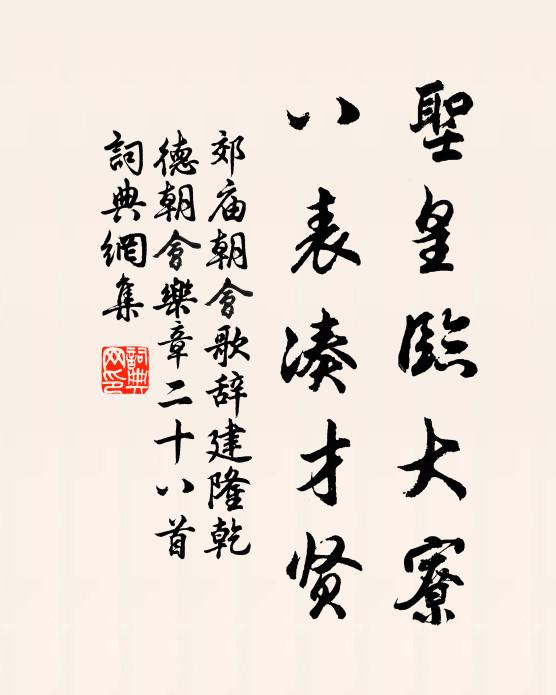 聖皇臨大寮
八表湊才贤
郊庙朝會歌辞建隆乾
德朝會樂章二十八首
詞典網集
詞典
网印